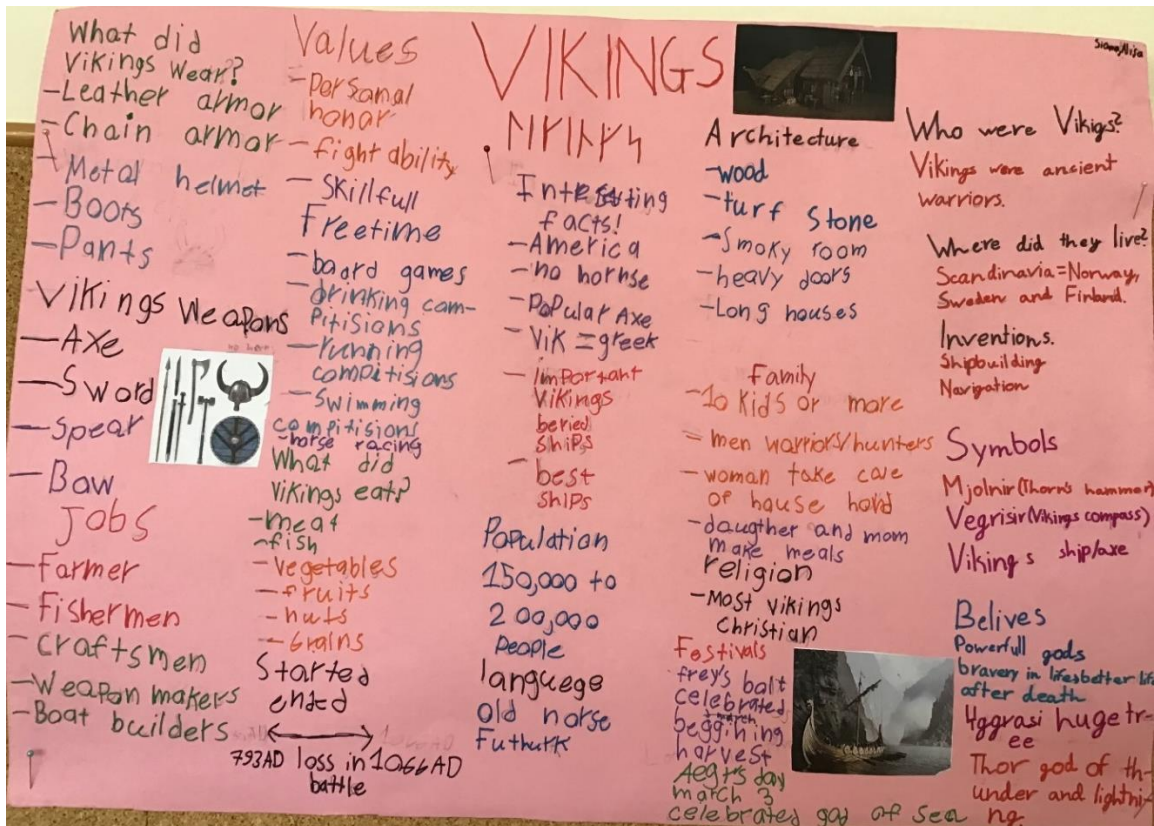 What did
Vikings Wear?
-Leather armor
-Chain armor
- Metal helmet
-Boots
-Pants
Vikings Weapons
-Axe
-Sword
-Spear
-Baw
Jobs
-Farmer
-Fishermen
-craftsmen
-Weapon makers
-Boat builders
Values
-Personal
honar
-fight ability
-Skillfull
Freetime
-board games
-drinking com-
pitisians
-running
compitisions
-Swimming
compitisions
-horse racing
What did
Vikings eat?
-meat
-fish
-vegetables
-fruits
-nuts
-Grains
Started
ended
793AD loss in 1066AD
battle
VIKINGS
ᚢᛁᚴᛁᚾᚴᛋ
facts!
-America
-no hornse
-Popular Axe
-Vik=greek
-important
Vikings
beried
ships
-best
ships
Population
150,000 to
200,000
People
languege
old norse
Futhurk
Architecture
-wood
-turf Stone
-Smoky room
-heavy doors
-Long houses
Family
-10 kids or more
-men warriors/hunters
-woman take care
of hause hord
-daugther and mom
make meals
religion
-Most vikings
Christian
Festivals
celebrated
march
beggining
harvest
day
march 3
celebrated god of sea
Who were Vikigs?
Vikings were ancient
warriors.
Where did they live?
Scandinavia=Norway,
Sweden and Finland.
Inventions.
Shipbuilding
Navigation
Symbols
Mjolnir(Thorn's hammer)
Vegrisir(Vikings compass)
Viking s ship/axe
Belives
Powerfull gods
bravery in life=better life
after death
Yggrasi huge tr-
ee
Thor god of th-
under and lightni-
ng